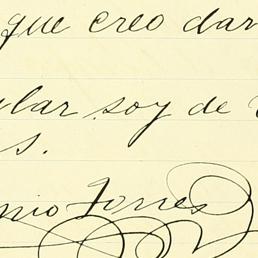 que creo dar
ular soy de
s.
nio Torres